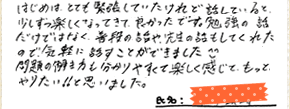 はじめは、とても緊張していたけれど話していると、
少しずつ楽しくなってきて、良かったです。勉強の話
だけではなく、普段の話や先生の話もしてくれた
ので気軽に話すことができました
問題の解き方も分かりやすくて楽しく感じて、もって、
やりたい!!と思いました。